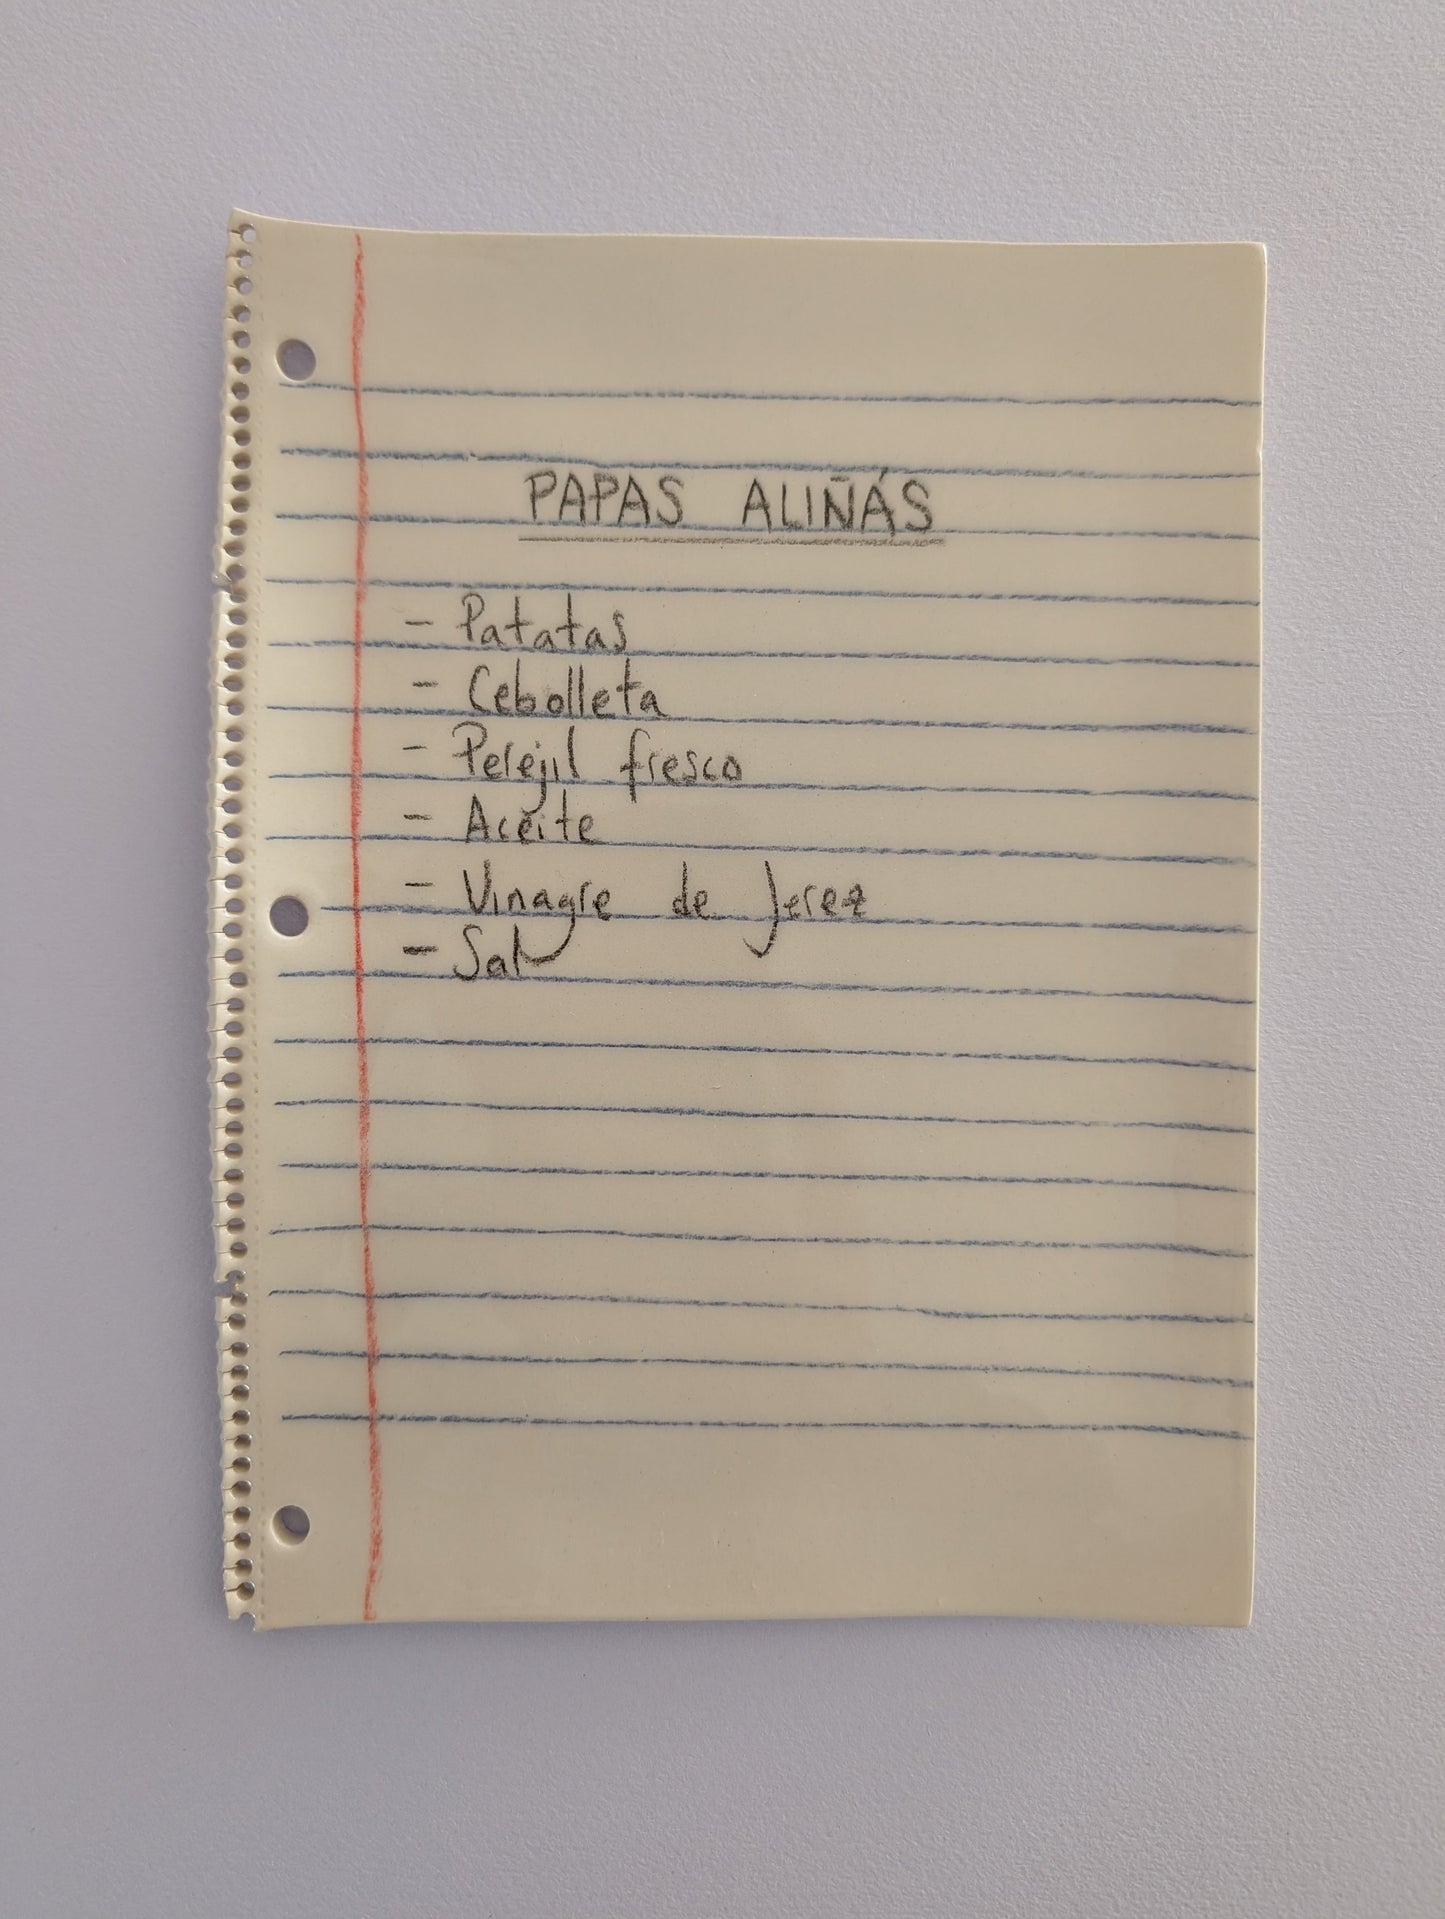 PAPAS ALIÑÁS
- Patatas
- Cebolleta
- Perejil fresco
- Aceite
- Vinagre de Jerez
- Sal